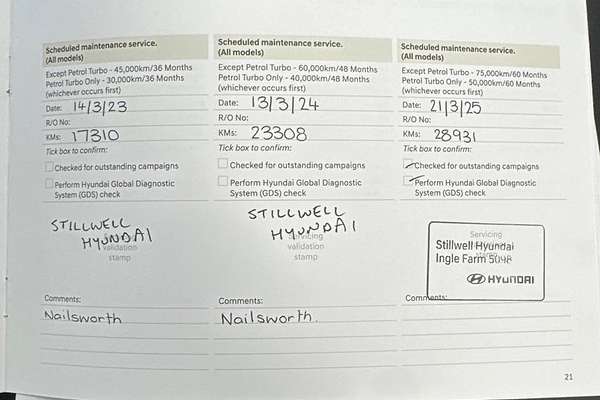 Scheduled maintenance service.
(All models)
Except Petrol Turbo - 45,000km/36 Months
Petrol Turbo Only - 30,000km/36 Months
(whichever occurs first)
Date: 14/3/23
R/O No:
KMs: 17310
Tick box to confirm:
Checked for outstanding campaigns
Perform Hyundai Global Diagnostic
System (GDS) check
STILLWELL
HYUNDAI
validation
stamp
Comments:
Nailsworth
Scheduled maintenance service.
(All models)
Except Petrol Turbo - 60,000km/48 Months
Petrol Turbo Only - 40,000km/48 Months
(whichever occurs first)
Date: 13/3/24
R/O No:
KMs: 23308
Tick box to confirm:
Checked for outstanding campaigns
Perform Hyundai Global Diagnostic
System (GDS) check
STILLWELL
HYUNDAI
Servicing
validation
stamp
Comments:
Nailsworth.
Scheduled maintenance service.
(All models)
Except Petrol Turbo - 75,000km/60 Months
Petrol Turbo Only - 50,000km/60 Months
(whichever occurs first)
Date: 21/3/25
R/O No:
KMs: 28931
Tick box to confirm:
Checked for outstanding campaigns
Perform Hyundai Global Diagnostic
System (GDS) check
Servicing
Stillwell Hyundai
Ingle Farm 5098
HYUNDAI
Comments:
21